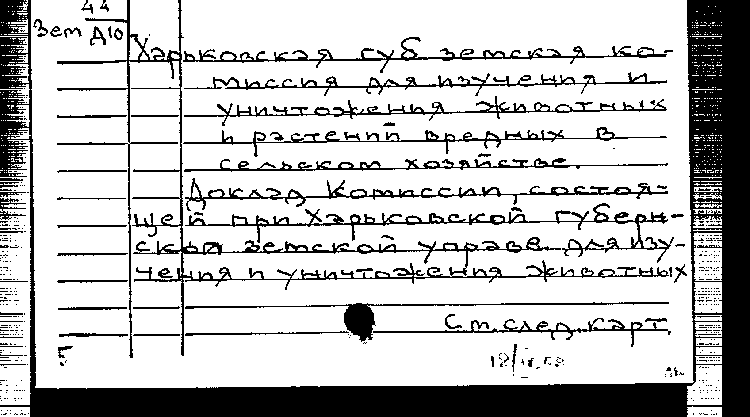 44
Зем Д10
Харьковская губ земская ко-
миссия для изучения и
уничтожения животных
и растений вредных в
сельском хозяйстве.
Доклад Комиссии, состоя-
щей при Харьковской губерн-
ской земской управе для изу-
чения и уничтожения животных
См. след. карт.
5